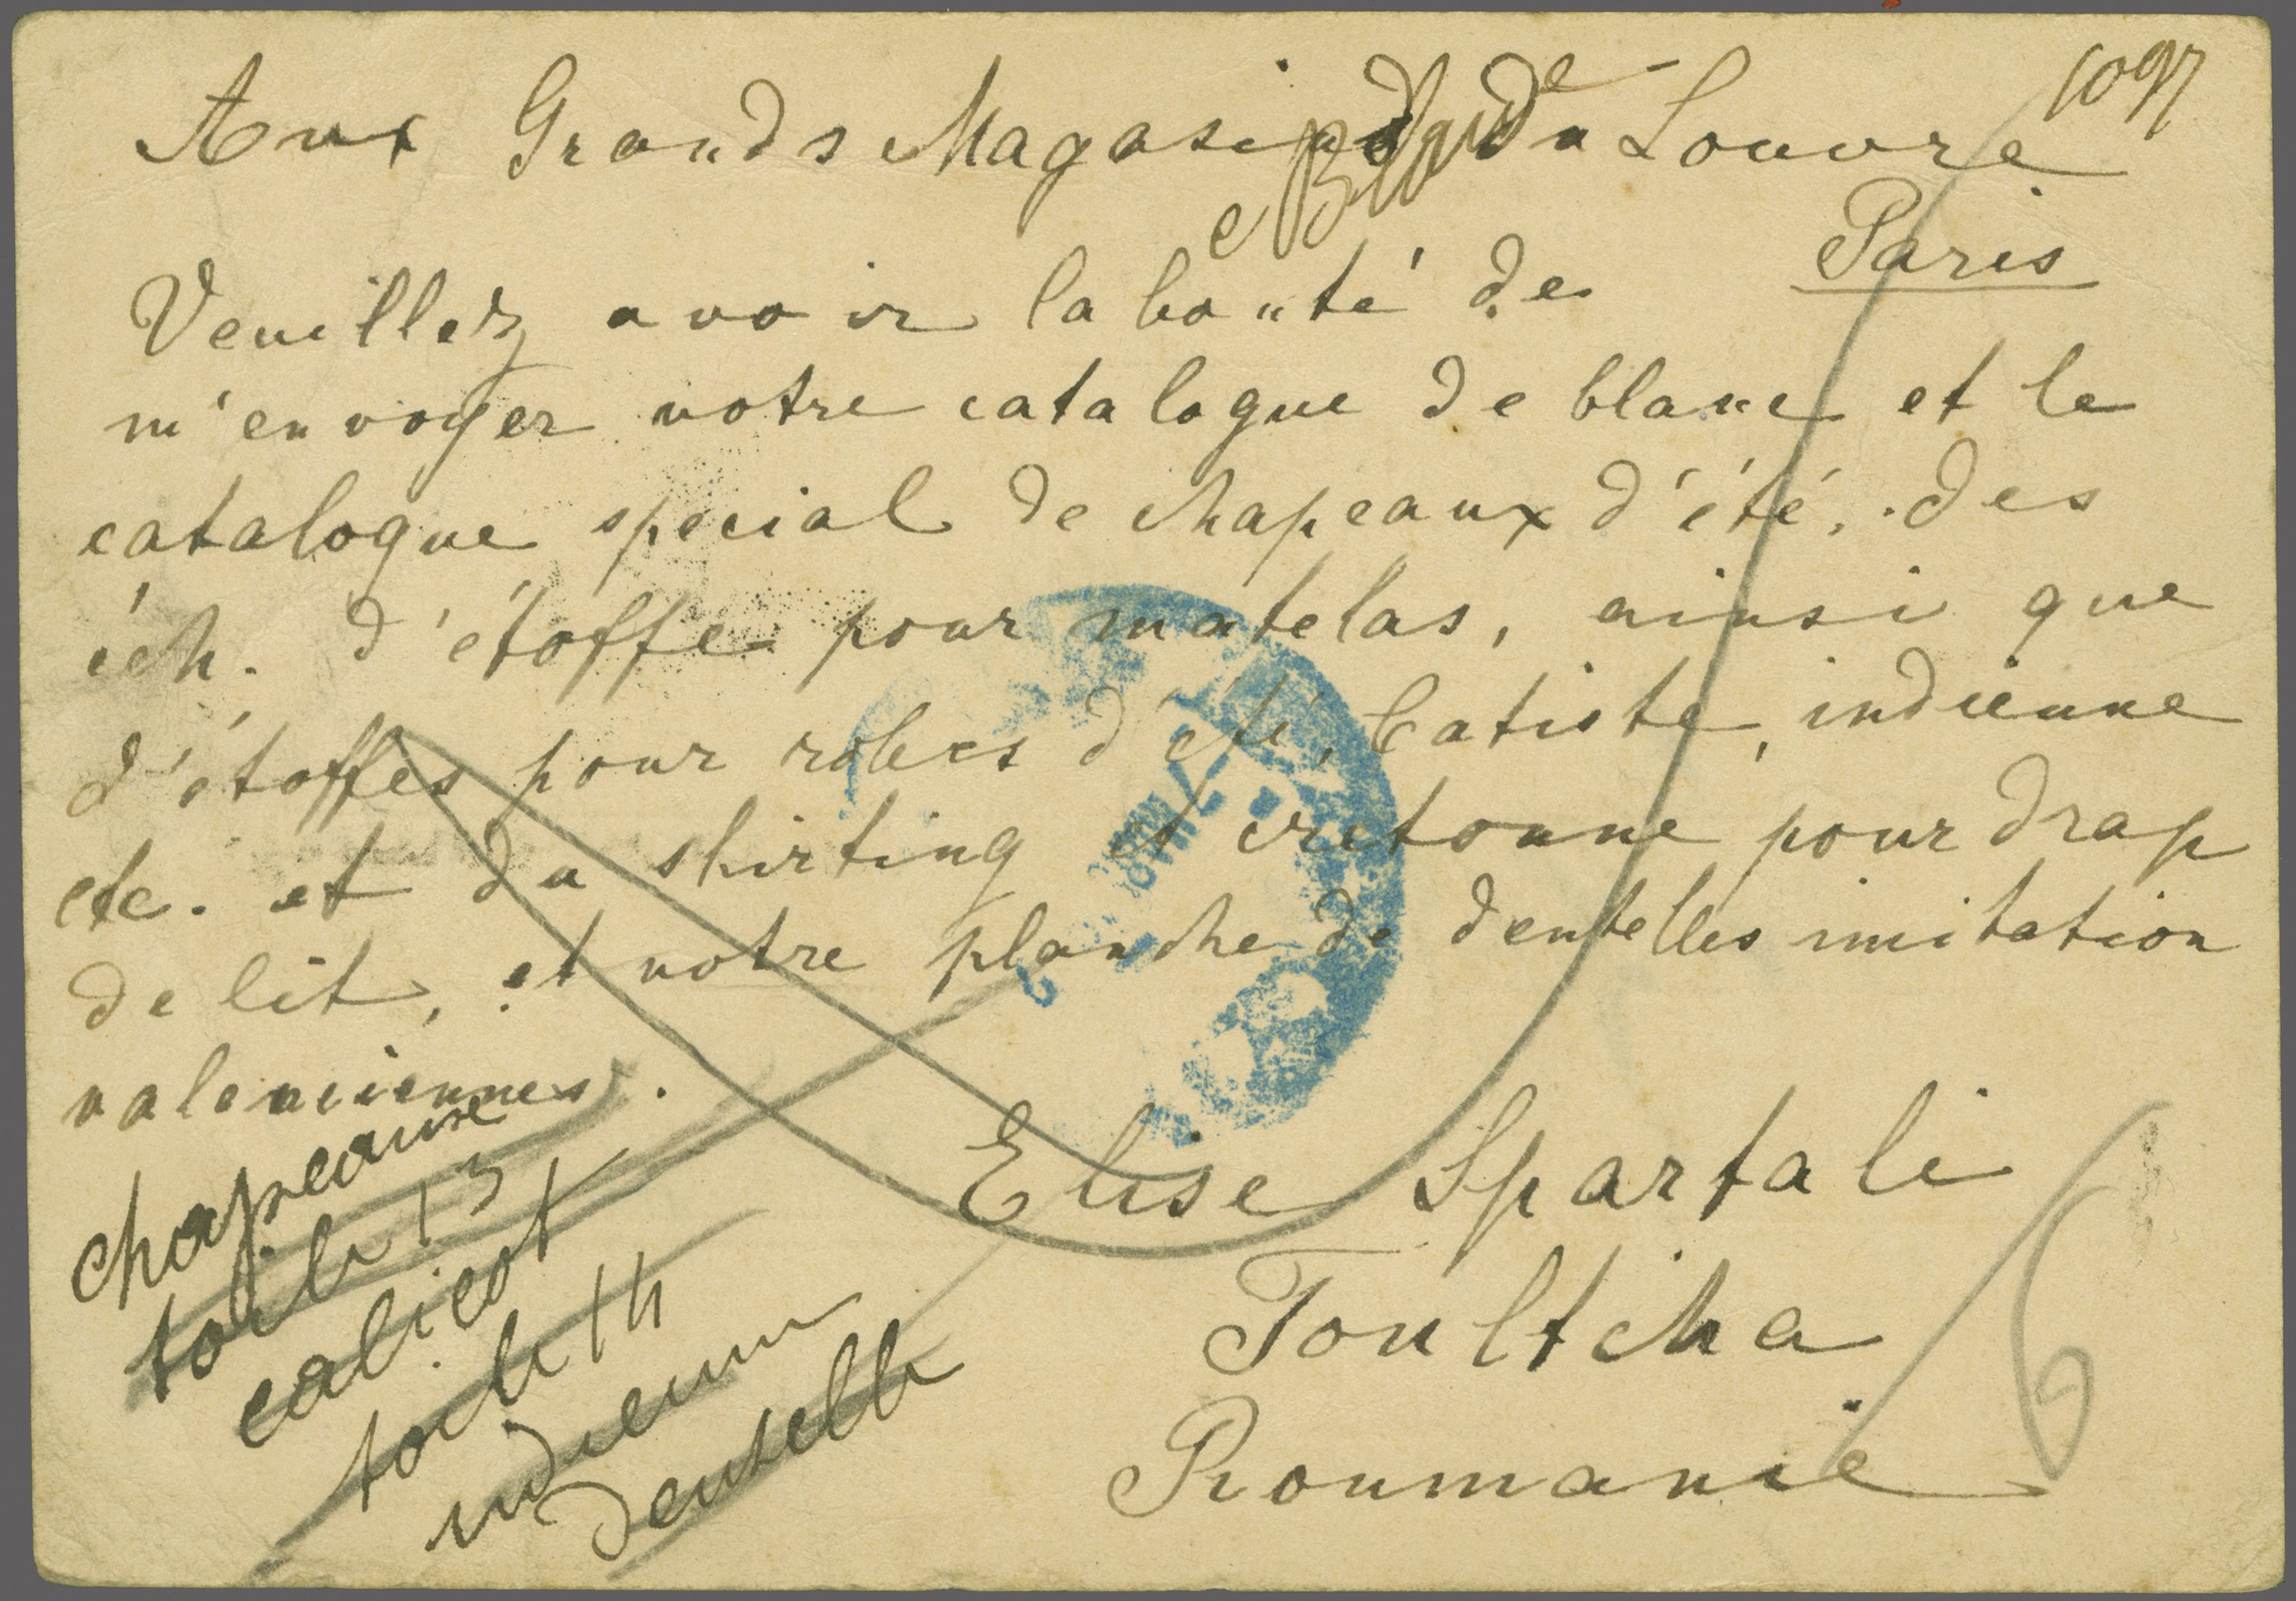 1097
Aux Grands Magasins du Louvre
Paris
Veuillez avoir la bonté de
m'envoyer votre catalogue de blanc et le
catalogue special de chapeaux d'été, des
éch. d'étoffe pour matelas, ainsi que
d'étoffes pour robes d'été, batiste, indienne
etc. et du shirting et cretonne pour drap
de lit, et votre planche de dentelles imitation
valenciennes.
Elise Spartali
Toultcha
Roumanie
chapeaux
toile 13
calicot
toile 14
indienne
dentelle
6